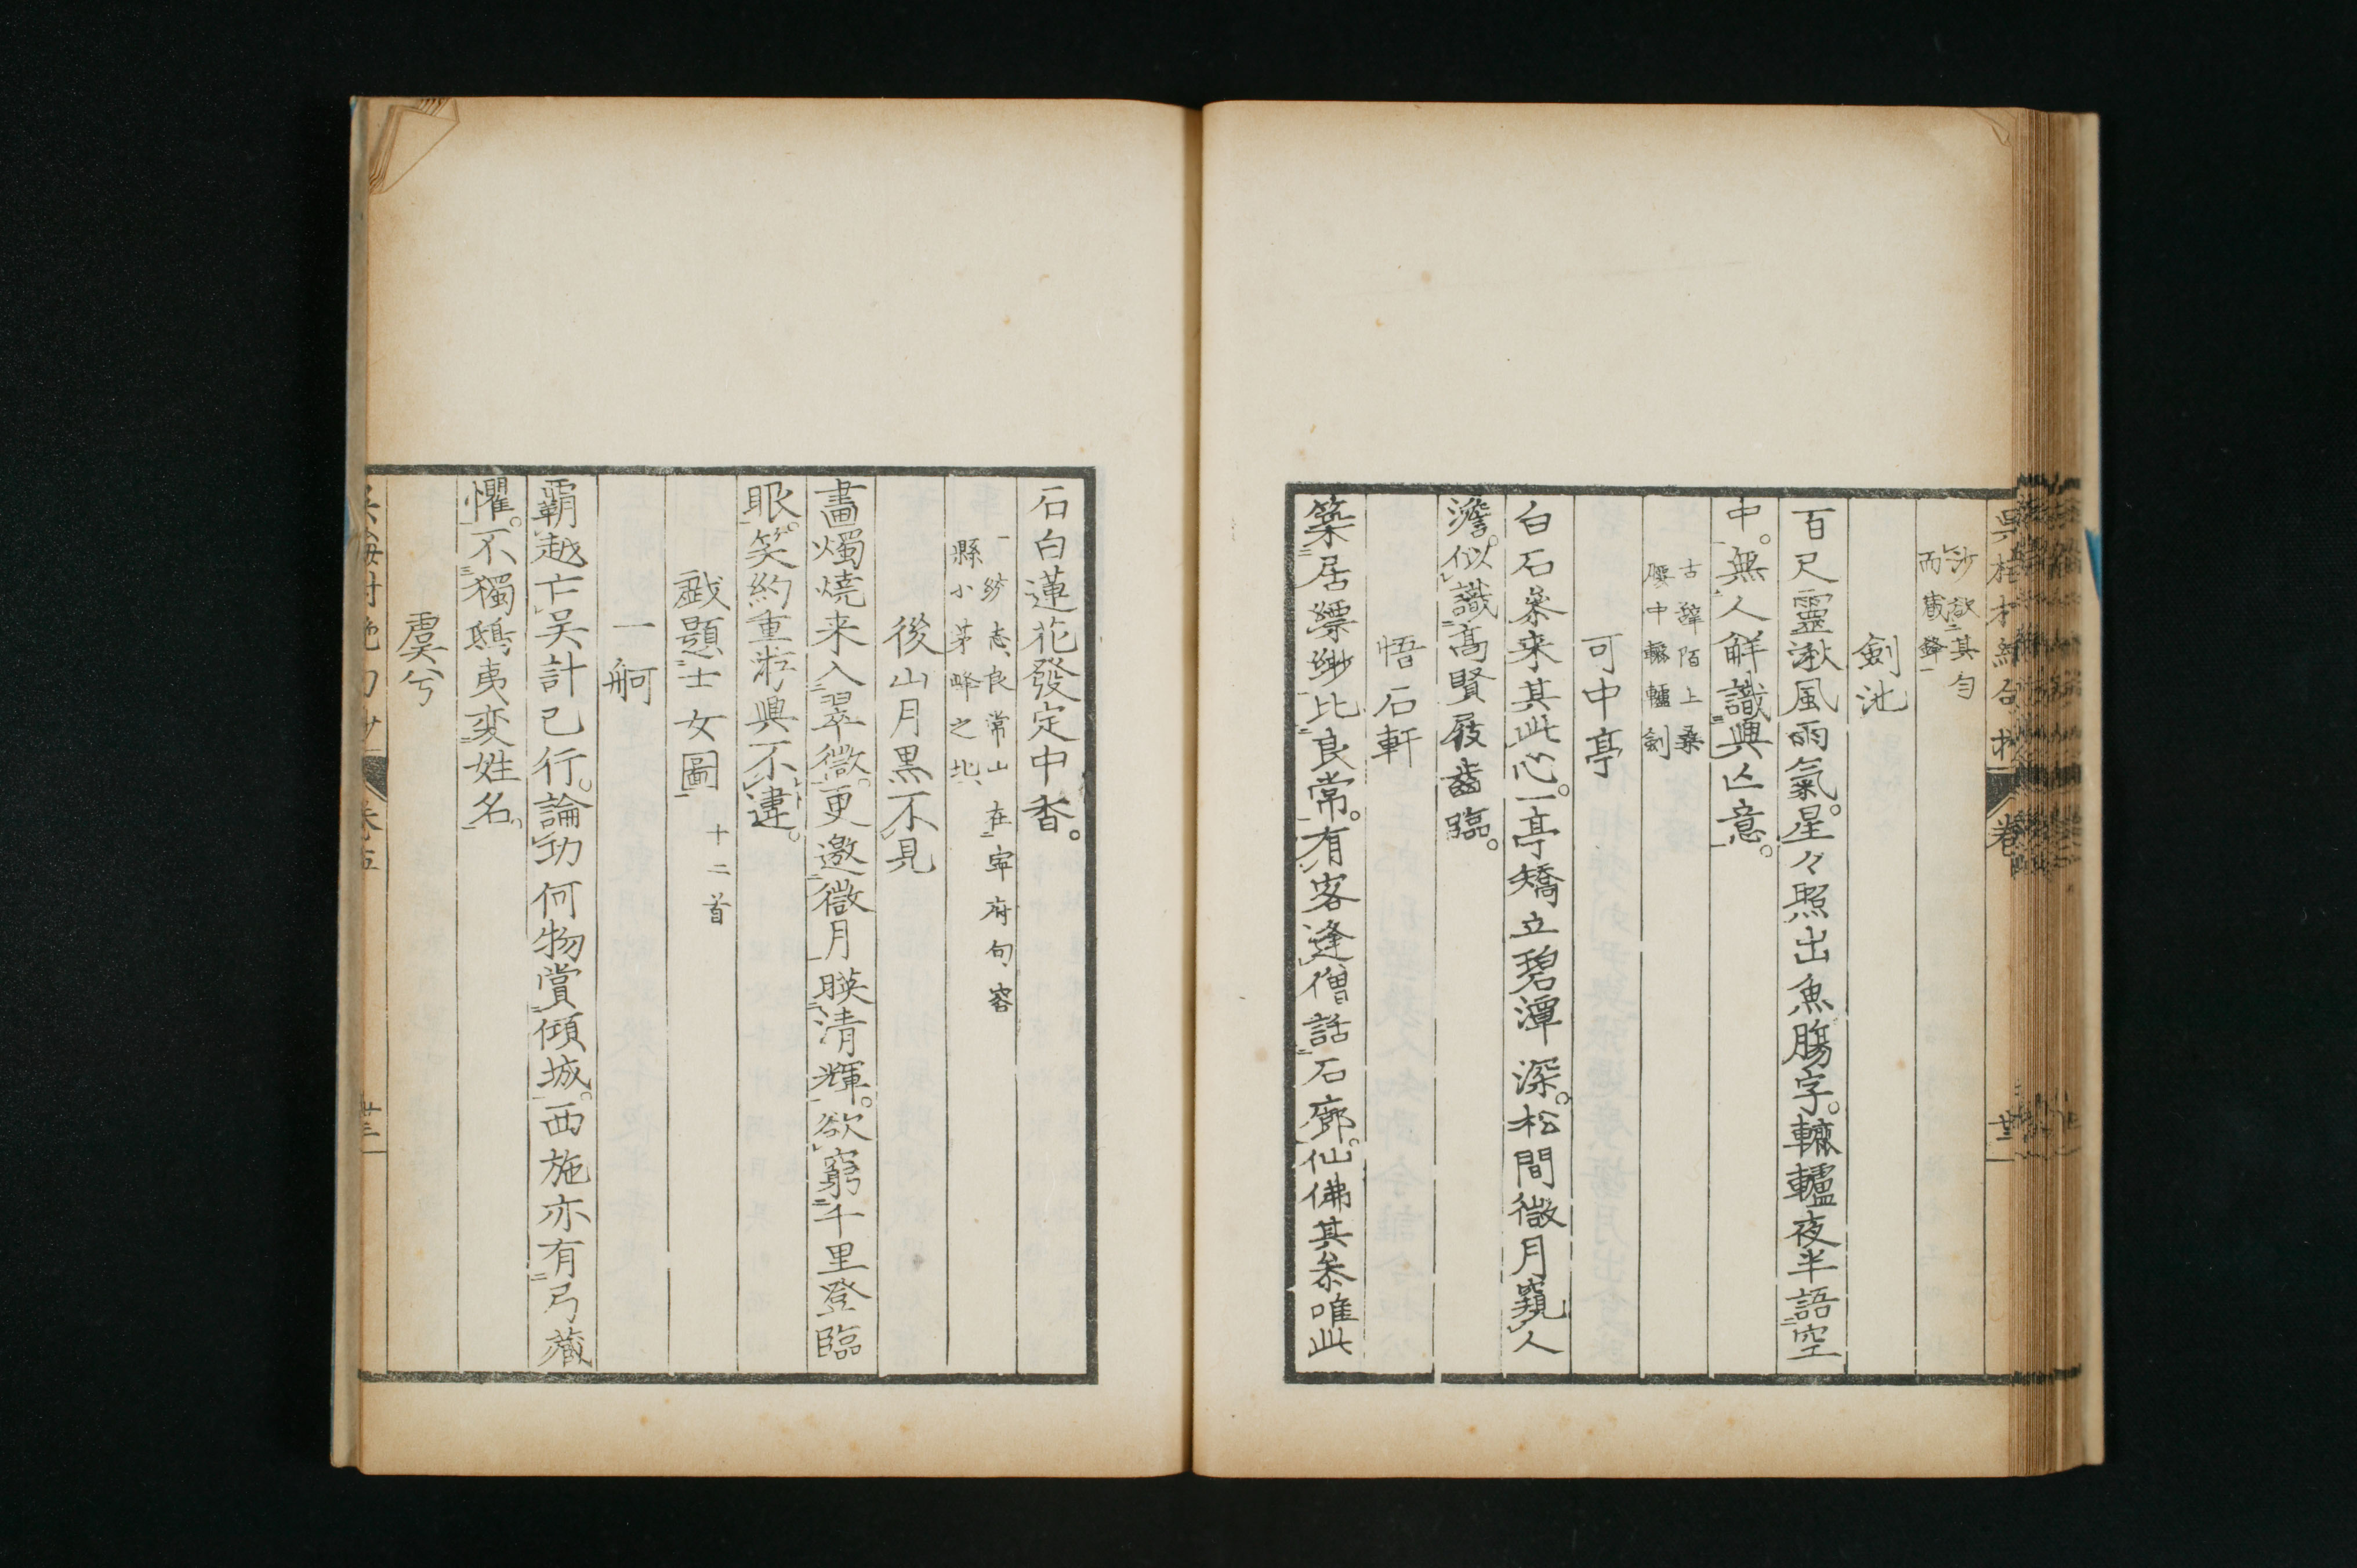 沙欲其勻
而藏鋒
劍池
百尺靈湫風雨氣。星々照出魚腸字。轆轤夜半語空
中。無人解識興亡意。
古辭陌上桑
腰中轆轤劍
可中亭
白石叅来其此心。一亭矯立碧潭深。松間微月窺人
澹。似識髙賢屐齒臨。
悟石軒
築居縹緲比良常。有客逢僧話石廊。仙佛其叅唯此
石白蓮花發定中香。
一紛志良常山在寧府句容
縣小茅峰之北
後山月黒不見
畵燭燒来入翠微。更邀微月暎清輝。欲窮千里登臨
眼。笑約重游興不違。
戯題士女圖 十二首
一舸
覇越亡吴計已行。論功何物賞傾城。西施亦有弓藏
懼。不獨鴟夷変姓名。
虞兮